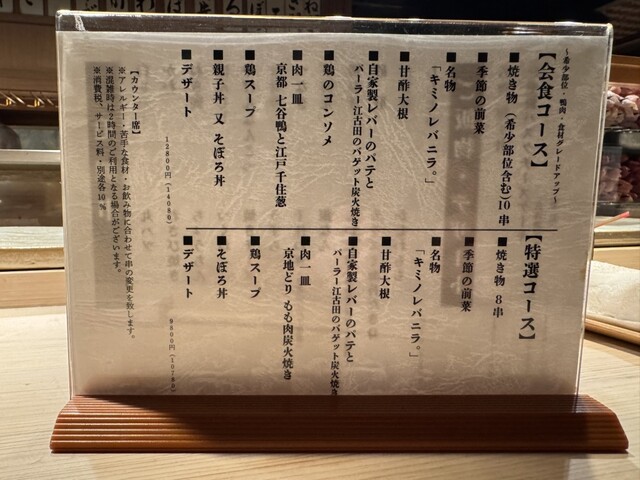 ～希少部位・鴨肉・食材グレードアップ～
【会食コース】
■焼き物（希少部位含む）10串
■季節の前菜
■名物
「キミノレバニラ。」
■甘酢大根
■自家製レバーのパテと
パーラー江古田のバゲット炭火焼き
■鶏のコンソメ
■肉一皿
京都 七谷鴨と江戸千住葱
■鶏スープ
■親子丼 又 そぼろ丼
■デザート
12800円（14080）
【特選コース】
■焼き物 8串
■季節の前菜
■名物
「キミノレバニラ。」
■甘酢大根
■自家製レバーのパテと
パーラー江古田のバゲット炭火焼き
■肉一皿
京地どり もも肉炭火焼き
■鶏スープ
■そぼろ丼
■デザート
9800円（10780）
【カウンター席】
※アレルギー・苦手な食材・お飲み物に合わせて串の変更を致します。
※混雑時は2時間のご利用となる場合がございます。
※消費税、サービス料・別途各10％